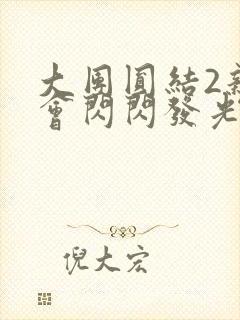 大團圓結2新
會閃閃發光
倪大宏